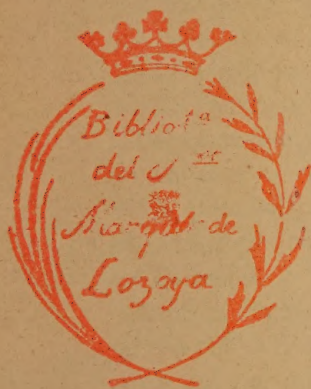 Bibliot.ª
del
Marqués de
Lozoya